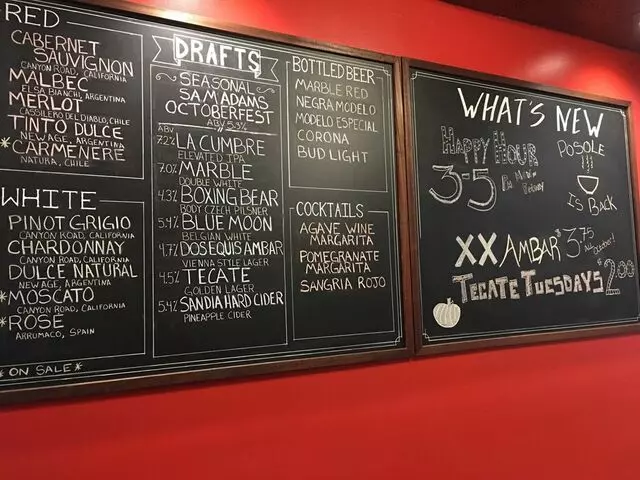 RED
CABERNET
SAUVIGNON
CANYON ROAD, CALIFORNIA
MALBEC
ELSA BIANCHI, ARGENTINA
MERLOT
CASSILERO DEL DIABLO, CHILE
TINTO DULCE
NEW AGE, ARGENTINA
*CARMENERE
NATURA, CHILE
WHITE
PINOT GRIGIO
CANYON ROAD, CALIFORNIA
CHARDONNAY
CANYON ROAD, CALIFORNIA
DULCE NATURAL
NEW AGE, ARGENTINA
*MOSCATO
CANYON ROAD, CALIFORNIA
*ROSE
ARRUMACO, SPAIN
*ON SALE*
DRAFTS
SEASONAL
SAM ADAMS
OCTOBERFEST
ABV 5.3%
ABV
7.2% LA CUMBRE
ELEVATED IPA
7.0% MARBLE
DOUBLE WHITE
4.3% BOXING BEAR
BODY CZECH PILSNER
5.4% BLUE MOON
BELGIAN WHITE
4.7% DOS EQUIS AMBAR
VIENNA STYLE LAGER
4.5% TECATE
GOLDEN LAGER
5.4% SANDIA HARD CIDER
PINEAPPLE CIDER
BOTTLED BEER
MARBLE RED
NEGRA MODELO
MODELO ESPECIAL
CORONA
BUD LIGHT
COCKTAILS
AGAVE WINE
MARGARITA
POMEGRANATE
MARGARITA
SANGRIA ROJO
WHAT'S NEW
HAPPY HOUR
3-5
POSOLE
IS BACK
XX AMBAR $3.75
TECATE TUESDAYS $2.00